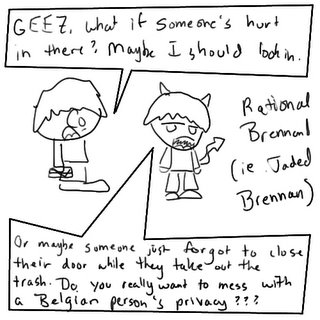 GEEZ, what if someone's hurt
in there?, Maybe I should look in.
Rational
Brennan
(ie. Jaded
Brennan)
Or maybe someone just forgot to close
their door while they take out the
trash. Do you really want to mess with
a Belgian person's privacy???